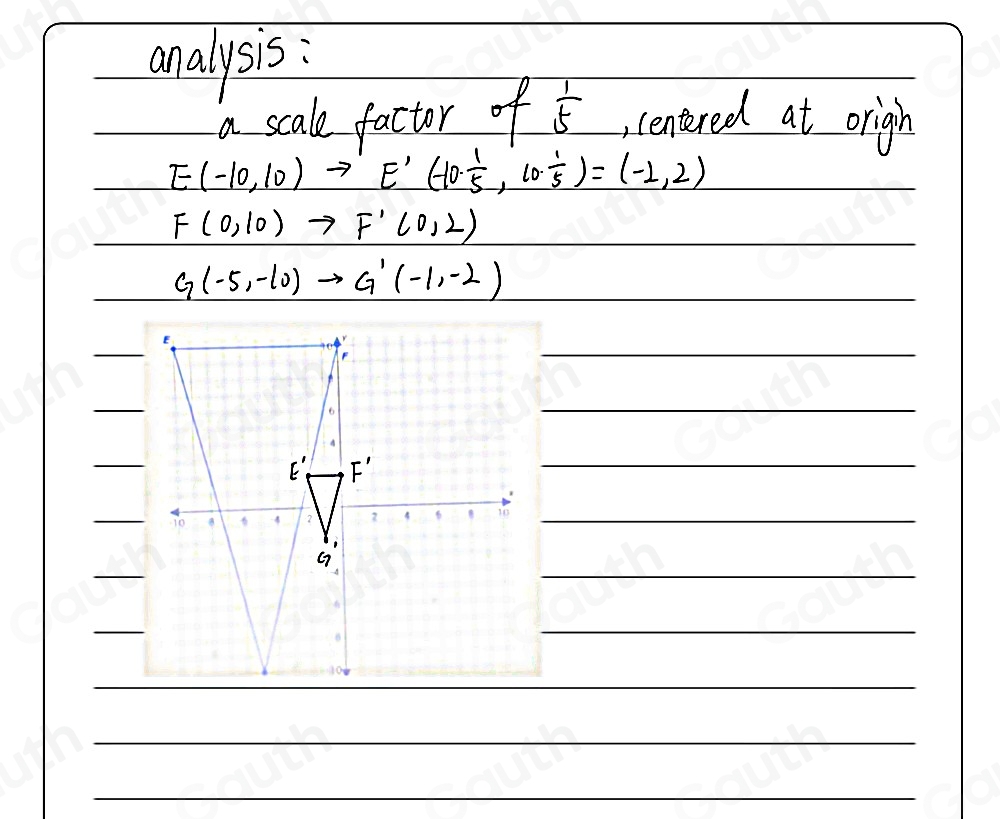 analysis:
a scale factor of 1/5, centered at origin
E(-10,10) → E'(-10·1/5, 10·1/5) = (-2,2)
F(0,10) → F'(0,2)
G(-5,-10) → G'(-1,-2)
E
10
Y
F
8
6
4
E'
F'
x
-10 8 6 4 2 2 4 6 8 10
G'
-4
6
8
-10
Gauth